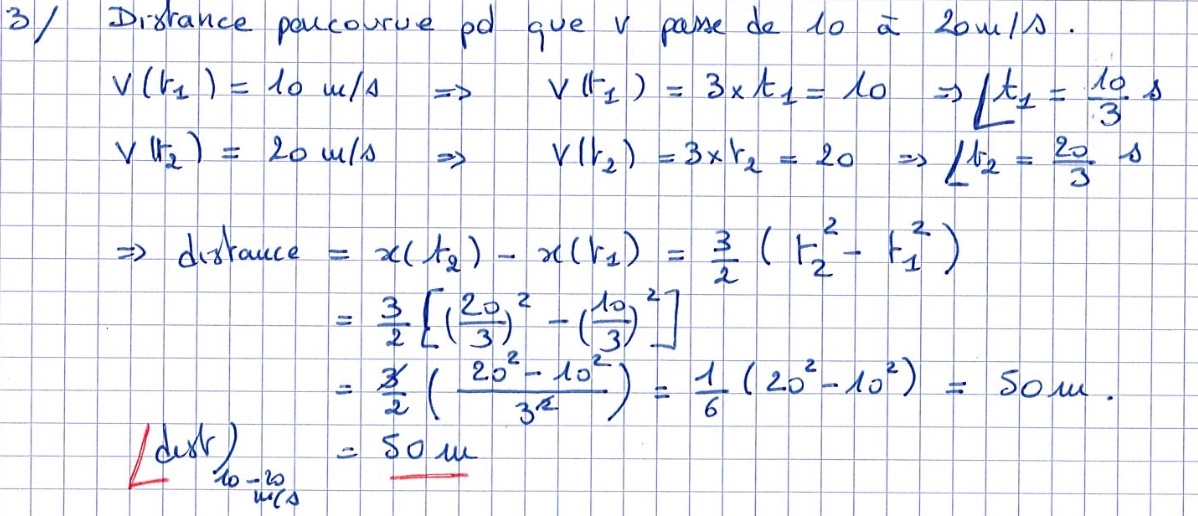 3/ Distance parcourue pd que v passe de 10 à 20 m/s.
v(t₁) = 10 m/s => v(t₁) = 3 x t₁ = 10 => t₁ = 10/3 s
v(t₂) = 20 m/s => v(t₂) = 3 x t₂ = 20 => t₂ = 20/3 s
=> distance = x(t₂) - x(t₁) = 3/2 (t₂² - t₁²)
= 3/2 [(20/3)² - (10/3)²]
= 3/2 ((20² - 10²)/3²) = 1/6 (20² - 10²) = 50 m.
dist)10-20 m/s = 50 m